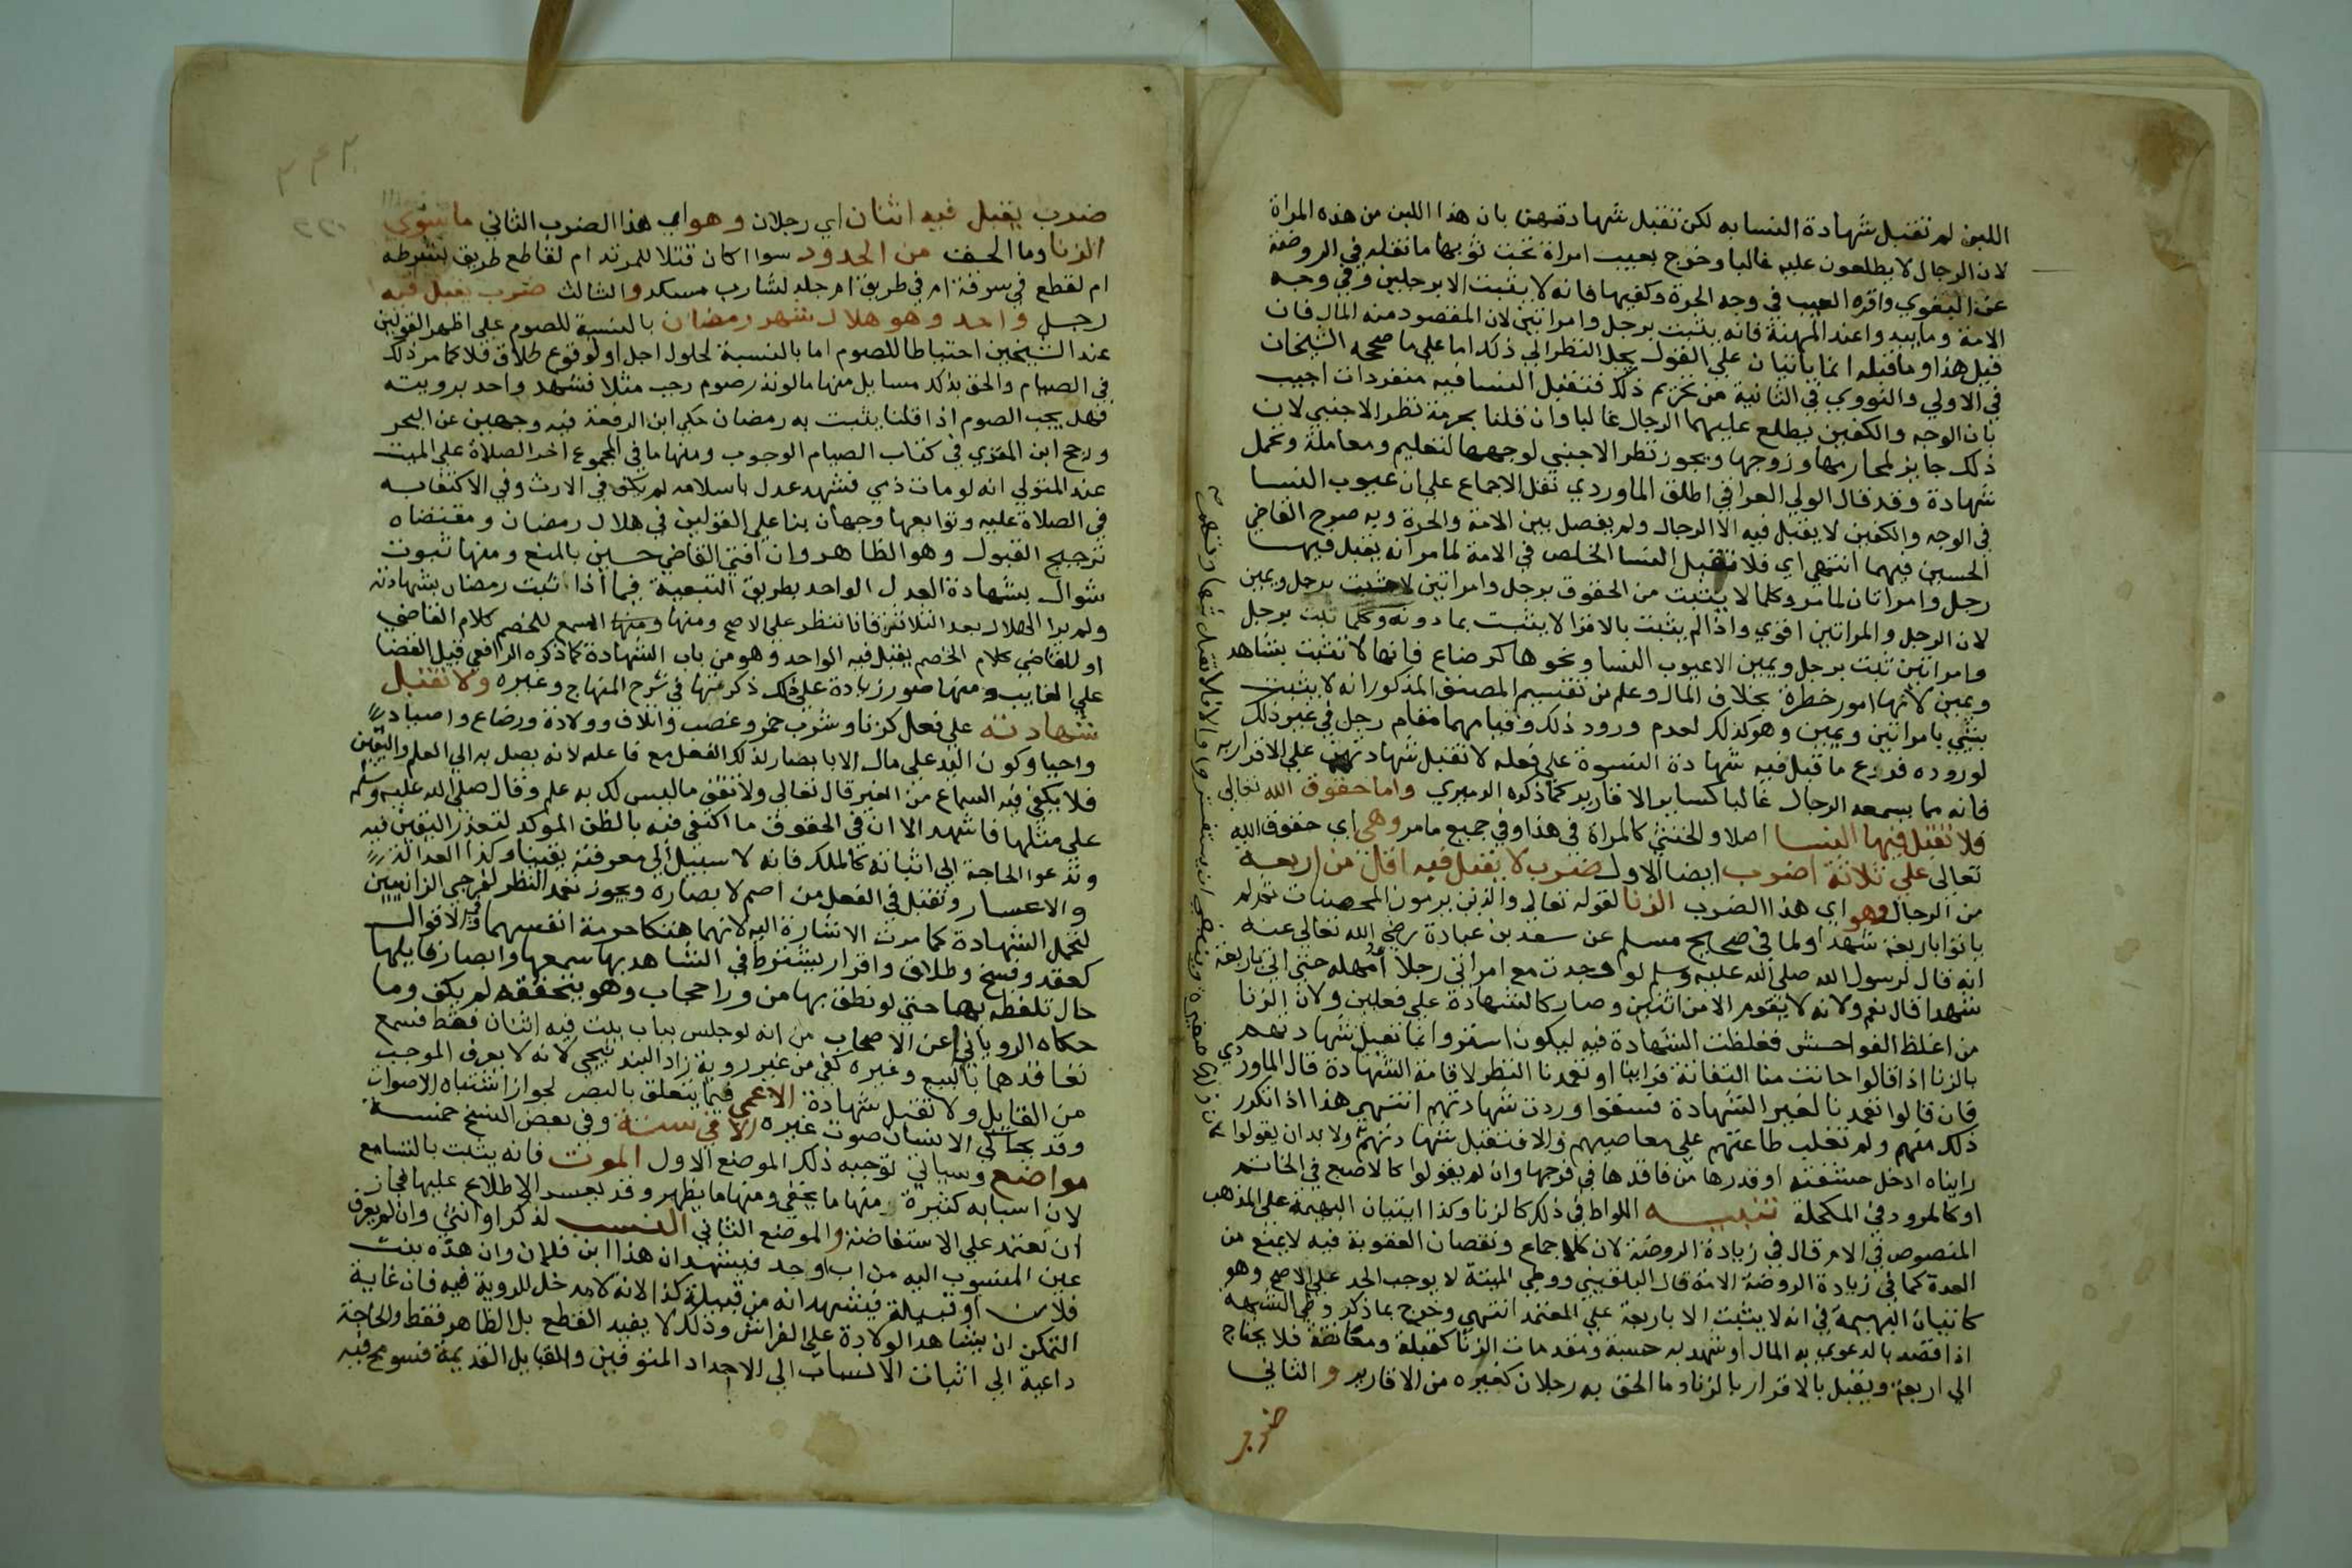 اللبن لم تقبل شهادة النسا به لكن تقبل شهادتهن بان هذا اللبن من هذه المراة
لان الرجال لا يطلعون عليه غالبا وخرج بعيب امراة تحت ثوبها ما نقله في الروضة
عن البغوي واقره العيب في وجه الحرة وكفيها فانه لا يثبت الا برجلين وفي وجه
الامة وما يبدوا عند المهنة فانه يثبت برجل وامراتين لان المقصود منه المال فان
قيل هذا وما قبله انما ياتيان علي القول بحل النظر الي ذلك اما علي ما صححه الشيخان
في الاولي والنووي في الثانية من تحريم ذلك فتقبل النسا فيه منفردات اجيب
بان الوجه والكفين يطلع عليهما الرجال غالبا وان قلنا بحرمة نظر الاجنبي لان
ذلك جايز لمحارمها وزوجها ويجوز نظر الاجنبي لوجهها لتعليم ومعاملة وتحمل
شهادة وقد قال الولي العراقي اطلق الماوردي نقل الاجماع علي ان عيوب النسا
في الوجه والكفين لا يقبل فيه الا الرجال ولم يفصل بين الامة والحرة وبه صرح القاضي
الحسين فيهما انتهي اي فلا تقبل النسا الخلص في الامة لما مر انه يقبل فيهـا
رجل وامراتان لما مر وكلما لا يثبت من الحقوق برجل وامراتين لا يثبت برجل ويمين
لان الرجل والمراتين اقوي واذا لم يثبت بالاقوا لا يثبت بما دونه وكلما ثبت برجل
وامراتين ثبت برجل ويمين الا عيوب النسا ونحوها كرضاع فانها لا تثبت بشاهد
ويمين لانها امور خطرة بخلاف المال وعلم من تقسيم المصنف المذكور انه لا يثبت
بشي بامراتين ويمين وهو كذلك لعدم ورود ذلك وقيامهما مقام رجل في غير ذلك
لوروده فرع ما قبل فيه شهادة النسوة علي فعله لا تقبل شهادتهن علي الاقرار به
فانه مما يسمعه الرجال غالبا كساير الاقارير كما ذكره الدميري واما حقوق الله تعالي
فلا تقبل فيها النسا اصلا والخنثي كالمراة في هذا وفي جميع ما مر وهي اي حقوق الله
تعالى علي ثلاثة اضرب ايضا الاول ضرب لا يقبل فيه اقل من اربعة
من الرجال وهو اي هذا الضرب الزنا لقوله تعالى والذين يرمون المحصنات ثم لم
ياتوا باربعة شهدا ولما في صحيح مسلم عن سعد بن عبادة رضي الله تعالي عنه
انه قال لرسول الله صلى الله عليه وسلم لو وجدت مع امراتي رجلا أمهله حتي اتي باربعة
شهدا قال نعم ولانه لا يقوم الا من اثنين وصار كالشهادة علي فعلين ولان الزنا
من اغلظ الفواحش فغلظت الشهادة فيه ليكون استر وانما تقبل شهادتهم
بالزنا اذا قالوا حانت منا التفاتة فراينا او تعمدنا النظر لاقامة الشهادة قال الماوردي
فان قالوا تعمدنا لغير الشهادة فسقوا وردت شهادتهم انتهي هذا اذا تكرر
ذلك منهم ولم تغلب طاعتهم علي معاصيهم والا فتقبل شهادتهم ولا بد ان يقولوا
رايناه ادخل حشفته او قدرها من فاقدها في فرجها وان لم يقولوا كالاصبع في الخاتم
او كالمرود في المكحلة تنبيـه اللواط في ذلك كالزنا وكذا اتيان البهيمة علي المذهب
المنصوص في الام قال في زيادة الروضة لان كلا جماع ونقصان العقوبة فيه لا يمنع من
العدة كما في زيادة الروضة الامة قال البلقيني ووطي الميتة لا يوجب الحد علي الاصح وهو
كاتيان البهيمة في انه لا يثبت الا باربعة علي المعتمد انتهي وخرج بما ذكر وطي الشبهة
اذا قصد بالدعوي به المال او شهد به حسبة ومقدمات الزنا كقبلة ومعانقة فلا يحتاج
الي اربعة ويقبل بالاقرار بالزنا وما الحق به رجلان كغيره من الاقارير والثاني
ضرب
ضرب يقبل فيه اثنان اي رجلان وهو اي هذا الضرب الثاني ما سوي
الزنا وما الحق من الحدود سوا اكان قتلا للمرتد ام لقاطع طريق بشرطه
ام لقطع في سرقة ام في طريق ام جلد لشارب مسكر والثالث ضرب يقبل فيه
رجـل واحد وهو هلال شهر رمضان بالنسبة للصوم علي اظهر القولين
عند الشيخين احتياطا للصوم اما بالنسبة لحلول اجل او لوقوع طلاق فلا كما مر ذلك
في الصيام والحق بذلك مسايل منها ما لو نذر صوم رجب مثلا فشهد واحد برويته
فهل يجب الصوم اذا قلنا يثبت به رمضان حكي ابن الرفعة فيه وجهين عن البحر
ورجح ابن المقري في كتاب الصيام الوجوب ومنها ما في المجموع اخر الصلاة علي الميت
عند المتولي انه لو مات ذمي فشهد عدل باسلامه لم يكف في الارث وفي الاكتفا به
في الصلاة عليه وتوابعها وجهان بنا علي القولين في هلال رمضان ومقتضاه
ترجيح القبول وهو الظاهر وان افتي القاضي حسين بالمنع ومنها ثبوت
شوال بشهادة العدل الواحد بطريق التبعية فيما اذا ثبت رمضان بشهادته
ولم يرا الهلال بعد الثلاثين فانا نفطر علي الاصح ومنها ومنها المسمع للخصم كلام القاضي
او للقاضي كلام الخصم يقبل فيه الواحد وهو من باب الشهادة كما ذكره الرافعي قبيل القضا
علي الغايب ومنها صور زيادة علي ذلك ذكرتها في شرح المنهاج وغيره ولا تقبل
شهادته علي فعل كزنا وشرب خمر وغصب واتلاف وولادة ورضاع واصياد
واحيا وكون اليد علي مال الا بابصار لذلك الفعل مع فاعله لانه يصل به الي العلم واليقين
فلا يكفي فيه السماع من الغير قال تعالي ولا تقف ما ليس لك به علم وقال صلى الله عليه وسلم
علي مثلها فاشهد الا ان في الحقوق ما اكتفي فيه بالظن الموكد لتعذر اليقين فيه
وتدعوا الحاجة الي اثباته كالملك فانه لا سبيل الي معرفته يقينا وكذا العدالة
والاعسار وتقبل في الفعل من اصم لابصاره ويجوز تعمد النظر لفرجي الزانيين
لتحمل الشهادة كما مرت الاشارة اليه لانهما هتكا حرمة انفسهما والاقوال
كعقد وفسخ وطلاق واقرار يشترط في الشاهد بها سمعها وابصار قايلها
حال تلفظه بها حتي لو نطق بها من ورا حجاب وهو يتحققه لم يكف وما
حكاه الروياني عن الاصحاب من انه لو جلس بباب بيت فيه اثنان فقط فسمع
تعاقدهما بالبيع وغيره كفي من غير روية زاد البندنيجي لانه لا يعرف الموجب
من القابل ولا تقبل شهادة الاعمي فيما يتعلق بالبصر لجواز اشتباه الاصوات
وقد يحاكي الانسان صوت غيره الا في ستة وفي بعض النسخ خمسة
مواضع وسياتي توجيه ذلك الموضع الاول الموت فانه يثبت بالتسامع
لان اسبابه كثيرة منها ما يخفي ومنها ما يظهر وقد يعسر الاطلاع عليها فجاز
ان يعتمد علي الاستفاضة والموضع الثاني النسب لذكر او انثي وان لم يعرف
عين المنسوب اليه من اب او جد فيشهد ان هذا ابن فلان وان هذه بنت
فلان او قبيلة فيشهد انه من قبيلة كذا لانه لا مدخل للروية فيه فان غاية
التمكن ان يشاهد الولادة علي الفراش وذلك لا يفيد القطع بل الظاهر فقط والحاجة
داعية الي اثبات الانساب الي الاجداد المتوفين والقبايل القديمة فسومح فيه